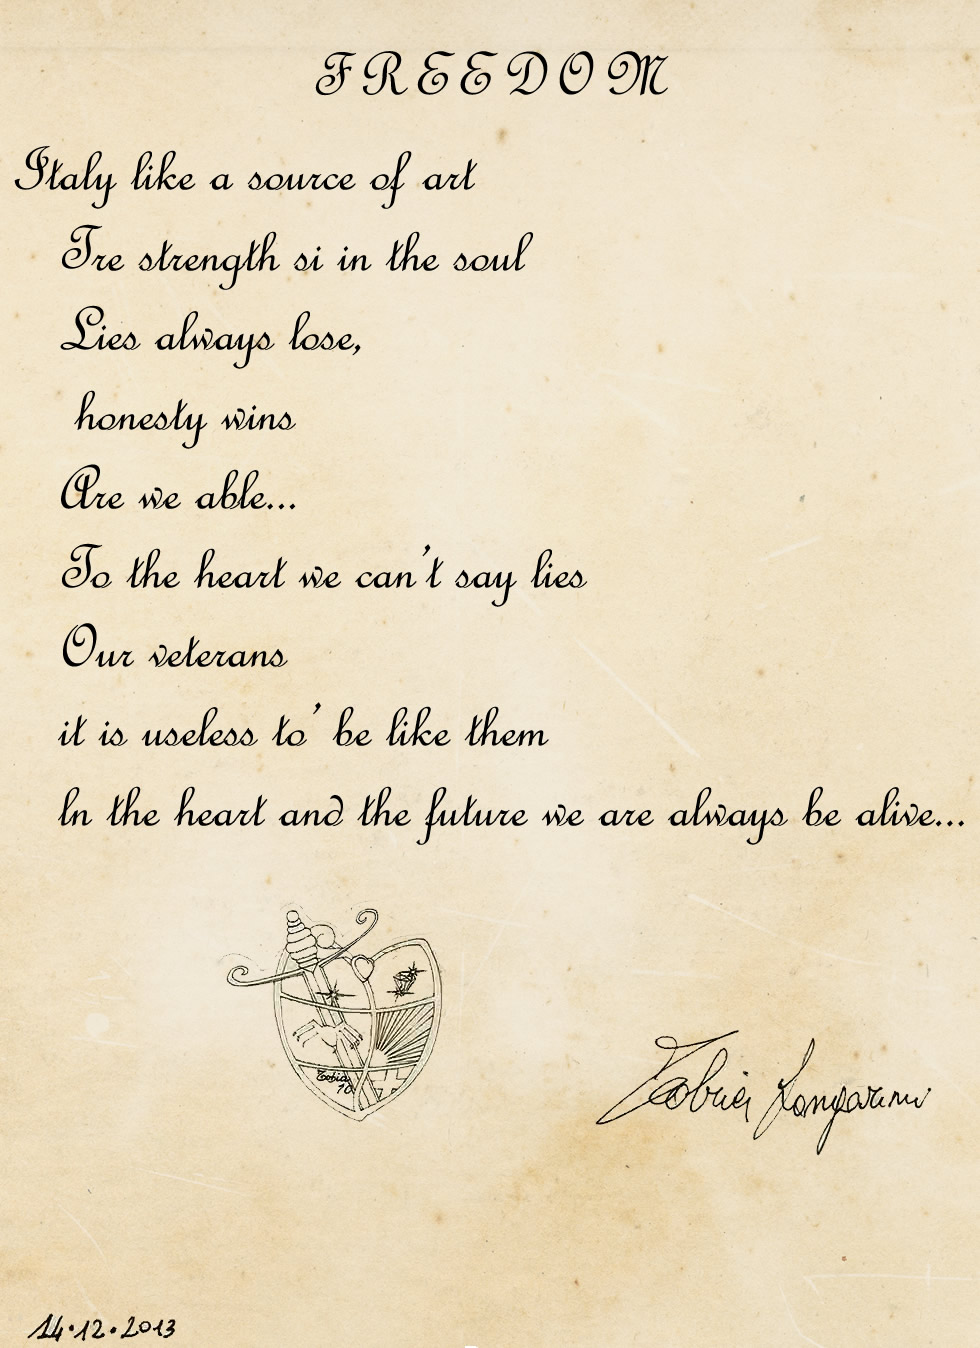 FREEDOM
Italy like a source of art
Tre strength si in the soul
Lies always lose,
honesty wins
Are we able...
To the heart we can't say lies
Our veterans
it is useless to' be like them
ln the heart and the future we are always be alive...
Tobia
10
Tobia
14.12.2013